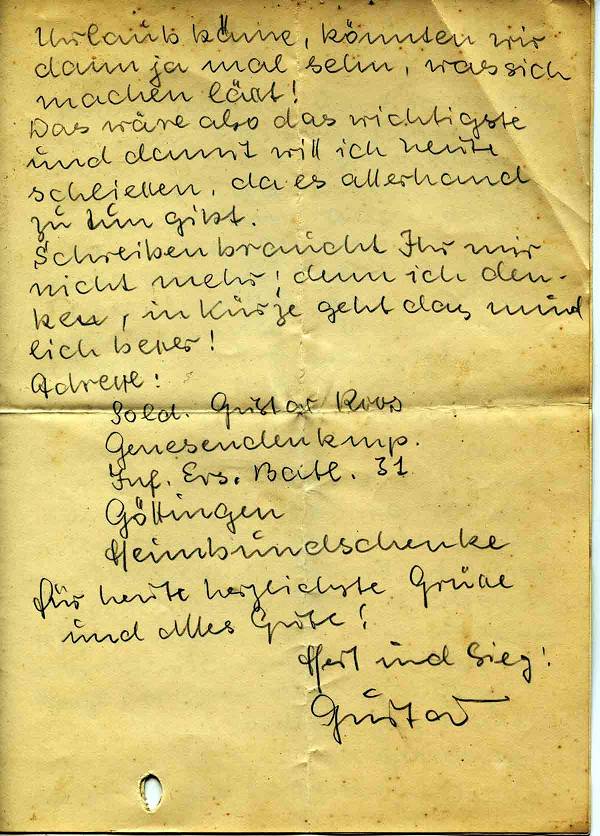 Urlaub käme, könnten wir
dann ja mal sehn, was sich
machen läßt!
Das wäre also das wichtigste
und damit will ich heute
schließen, da es allerhand
zu tun gibt.
Schreiben braucht Ihr mir
nicht mehr; denn ich den-
ken, in Kürze geht das münd
lich besser!
Adresse:
Sold. Gustav Roos
Genesendenkmp.
Inf. Ers. Batl. 31
Göttingen
Heinbundschenke
Für heute herzlichste Grüße
und alles Gute!
Heil und Sieg!
Gustav